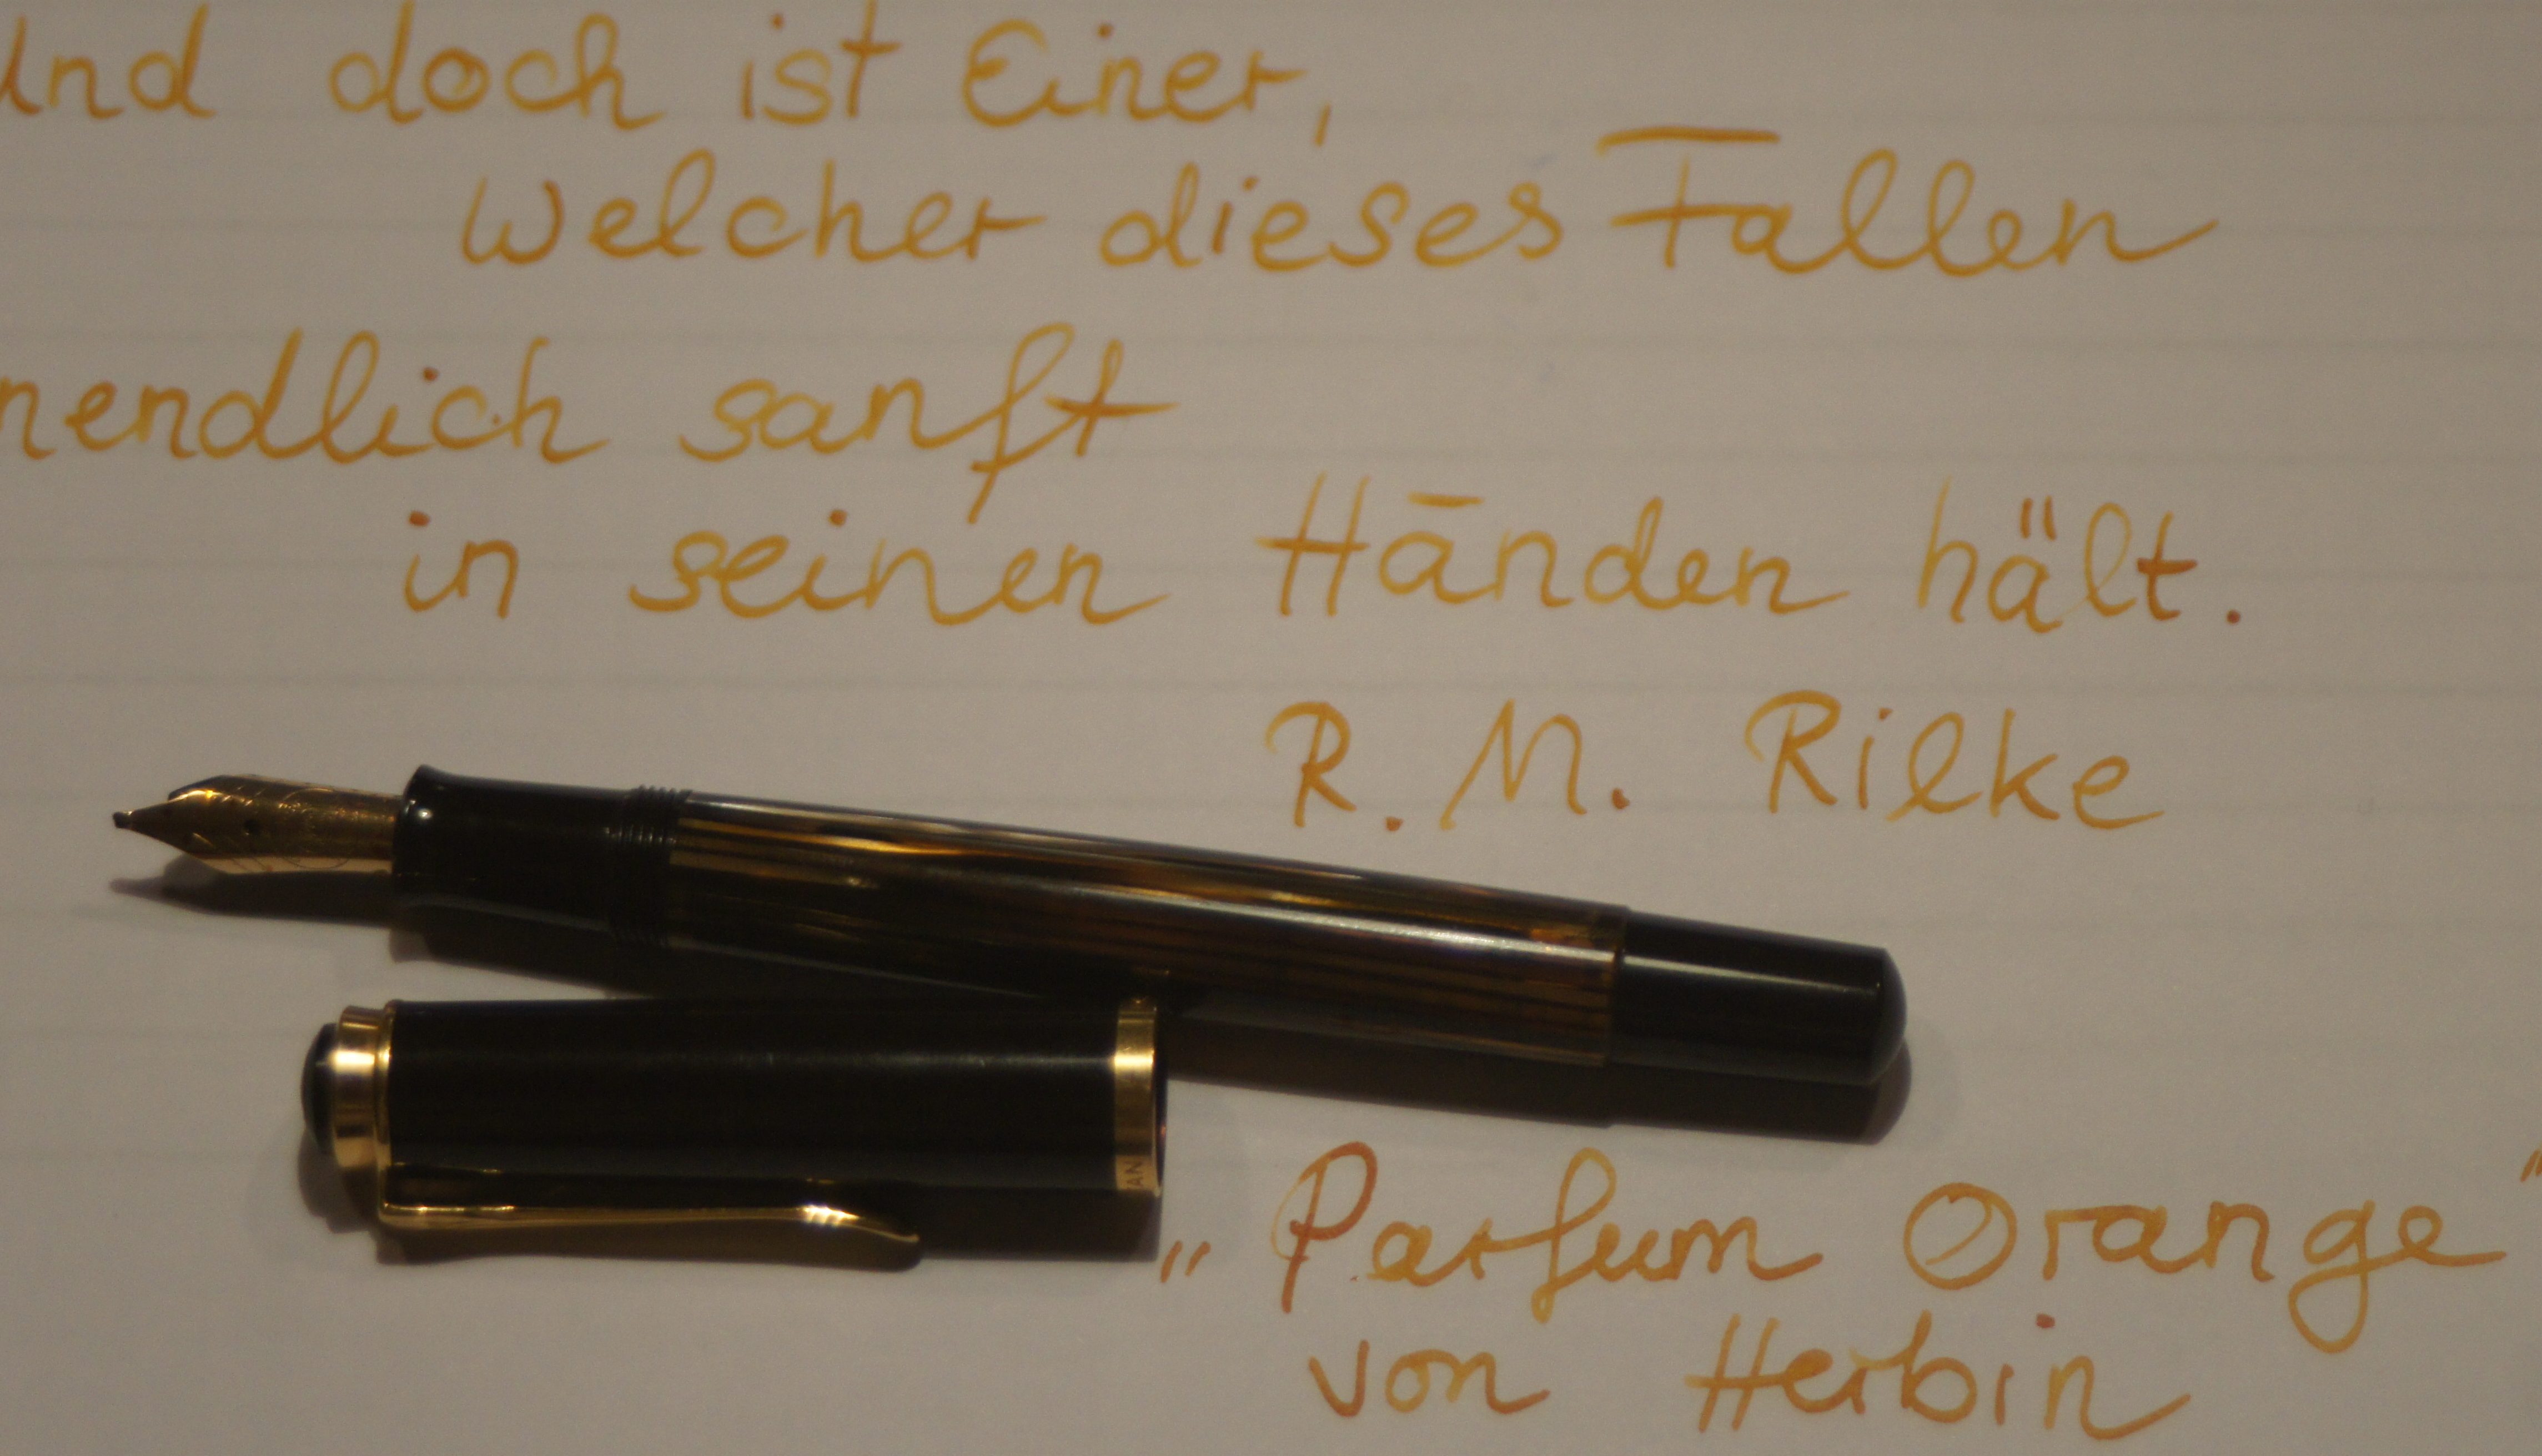 Und doch ist Einer,
welcher dieses Fallen
nendlich sanft
in seinen Händen hält.
R. M. Rilke
AN
„Parfum Orange"
von Herbin